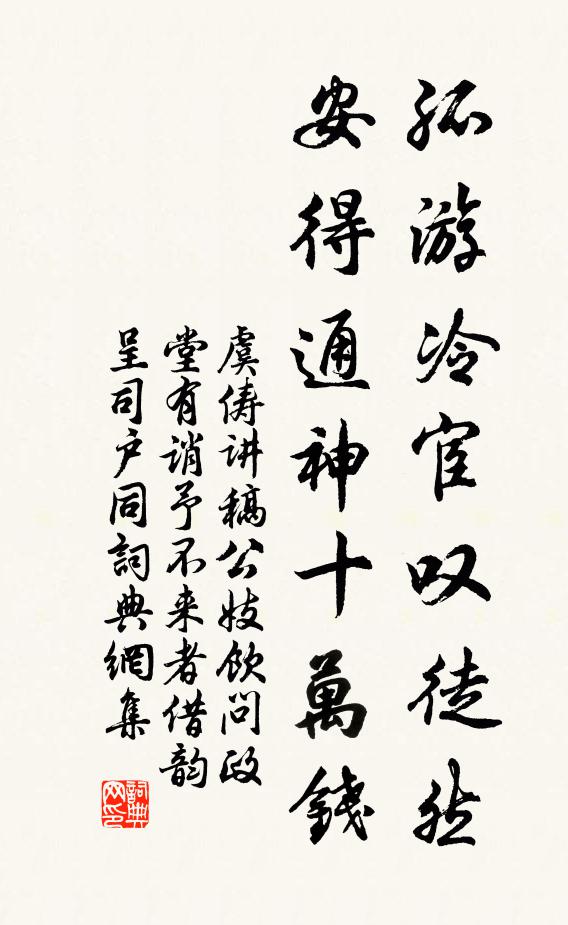 孤游冷宦叹徒然
安得通神十萬錢
虞俦讲稿公妓飲问政
堂有诮予不来者借韵
呈司户同詞典網集
詞典网印